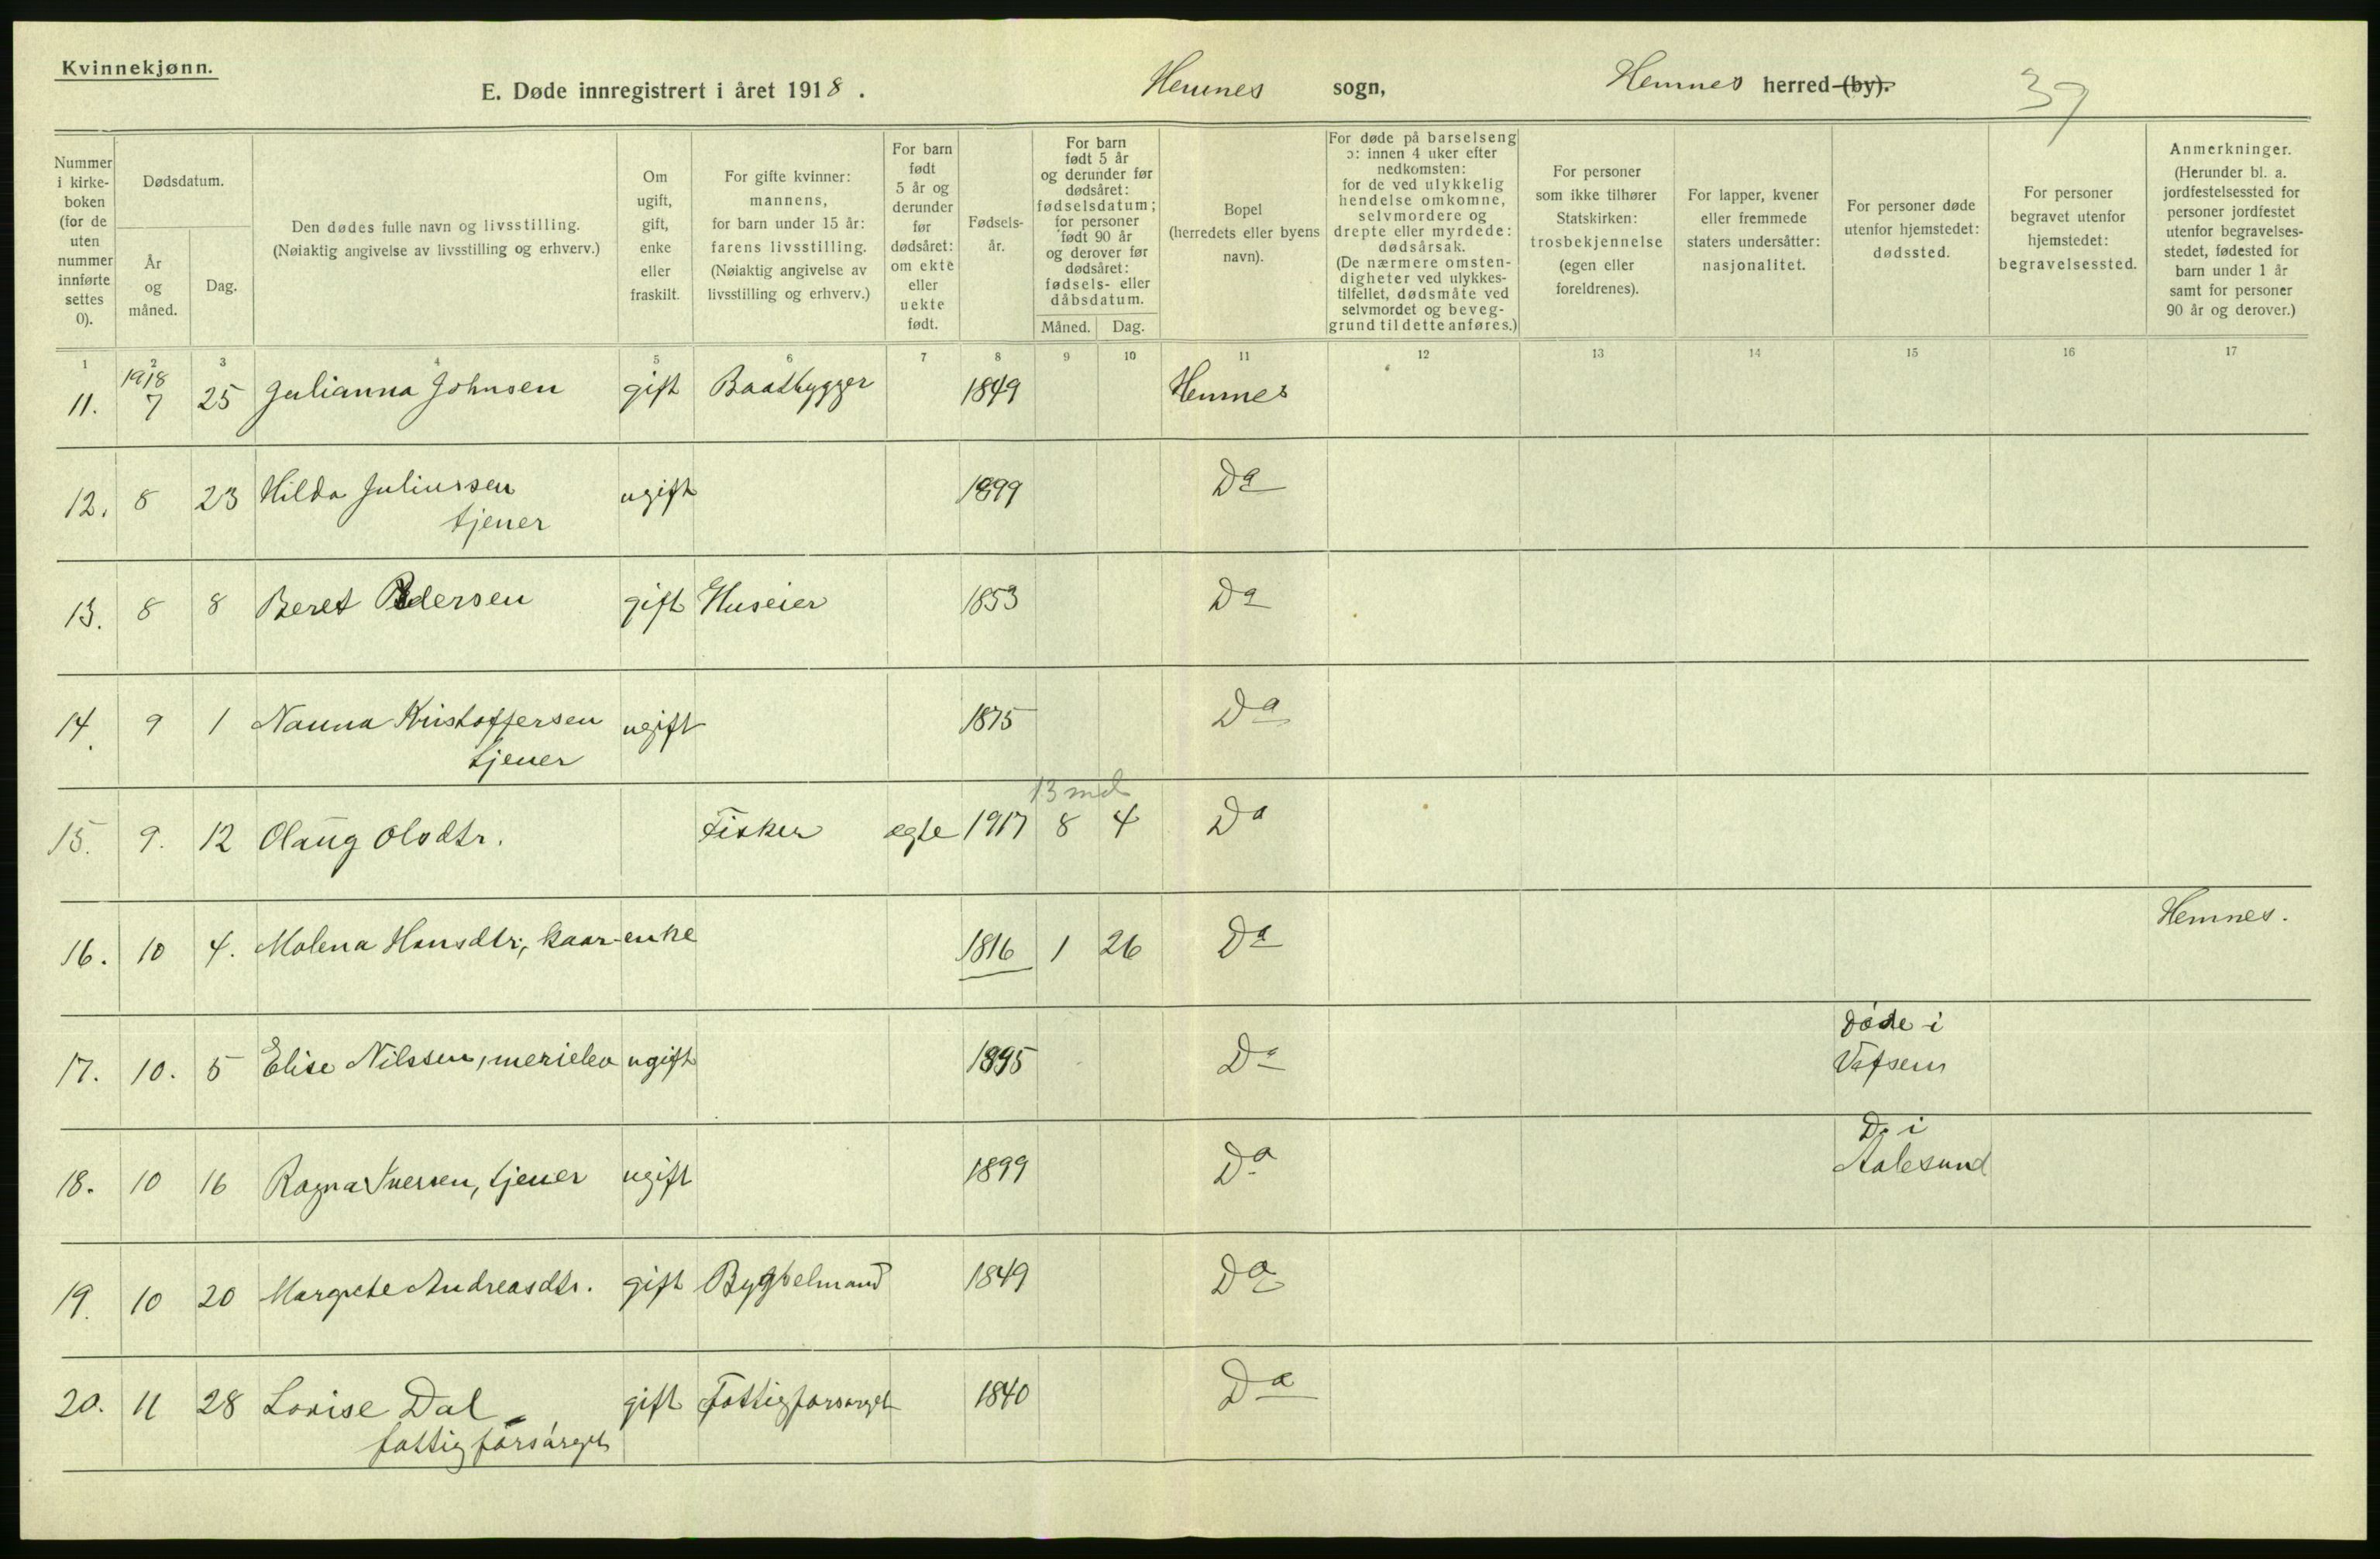 Kvinnekjønn.
E. Døde innregistrert i året 1918. Hemnes sogn, Hemnes herred (by). 39
Nummer i kirke-boken (for de uten nummer innførte settes 0).
Dødsdatum.
År og måned.
Dag.
Den dødes fulle navn og livsstilling.
(Nøiaktig angivelse av livsstilling og erhverv.)
Om ugift, gift, enke eller fraskilt.
For gifte kvinner: mannens, for barn under 15 år: farens livsstilling. (Nøiaktig angivelse av livsstilling og erhverv.)
For barn født 5 år og derunder før dødsåret: om ekte eller uekte født.
Fødsels-år.
For barn født 5 år og derunder før dødsåret: fødselsdatum; for personer født 90 år og derover før dødsåret: fødsels- eller dåbsdatum.
Måned. Dag.
Bopel (herredets eller byens navn).
For døde på barselseng ɔ: innen 4 uker efter nedkomsten: for de ved ulykkelig hendelse omkomne, selvmordere og drepte eller myrdede: dødsårsak. (De nærmere omsten-digheter ved ulykkes-tilfellet, dødsmåte ved selvmordet og beveg-grund til dette anføres.)
For personer som ikke tilhører Statskirken: trosbekjennelse (egen eller foreldrenes).
For lapper, kvener eller fremmede staters undersåtter: nasjonalitet.
For personer døde utenfor hjemstedet: dødssted.
For personer begravet utenfor hjemstedet: begravelsessted.
Anmerkninger. (Herunder bl. a. jordfestelsessted for personer jordfestet utenfor begravelses-stedet, fødested for barn under 1 år samt for personer 90 år og derover.)
1 2 3 4 5 6 7 8 9 10 11 12 13 14 15 16 17
1918
11. 7 25 Julianna Johnsen gift Baatbygger 1849 Hemnes
12. 8 23 Hilda Juliussen ugift 1899 Do
tjener
13. 8 8 Beret Pedersen gift Huseier 1853 Do
14. 9 1 Nanna Kristoffersen ugift 1875 Do
tjener
13 md
15. 9. 12 Olaug Olsdtr. Fisker egte 1917 8 4 Do
Hemnes.
16. 10 4. Molena Hansdtr., kaar-enke 1816 1 26 Do
Døde i
17. 10. 5 Elise Nilssen, ugift 1895 Do Vefsen
Do i
18. 10 16 Ragna Iversen, tjener ugift 1899 Do Aalesund
19. 10 20 Margrete Andreasdtr. gift Bygselmand 1849 Do
20. 11 28 Lovise Dal gift Fattigforsørget 1840 Do
fattigforsørget